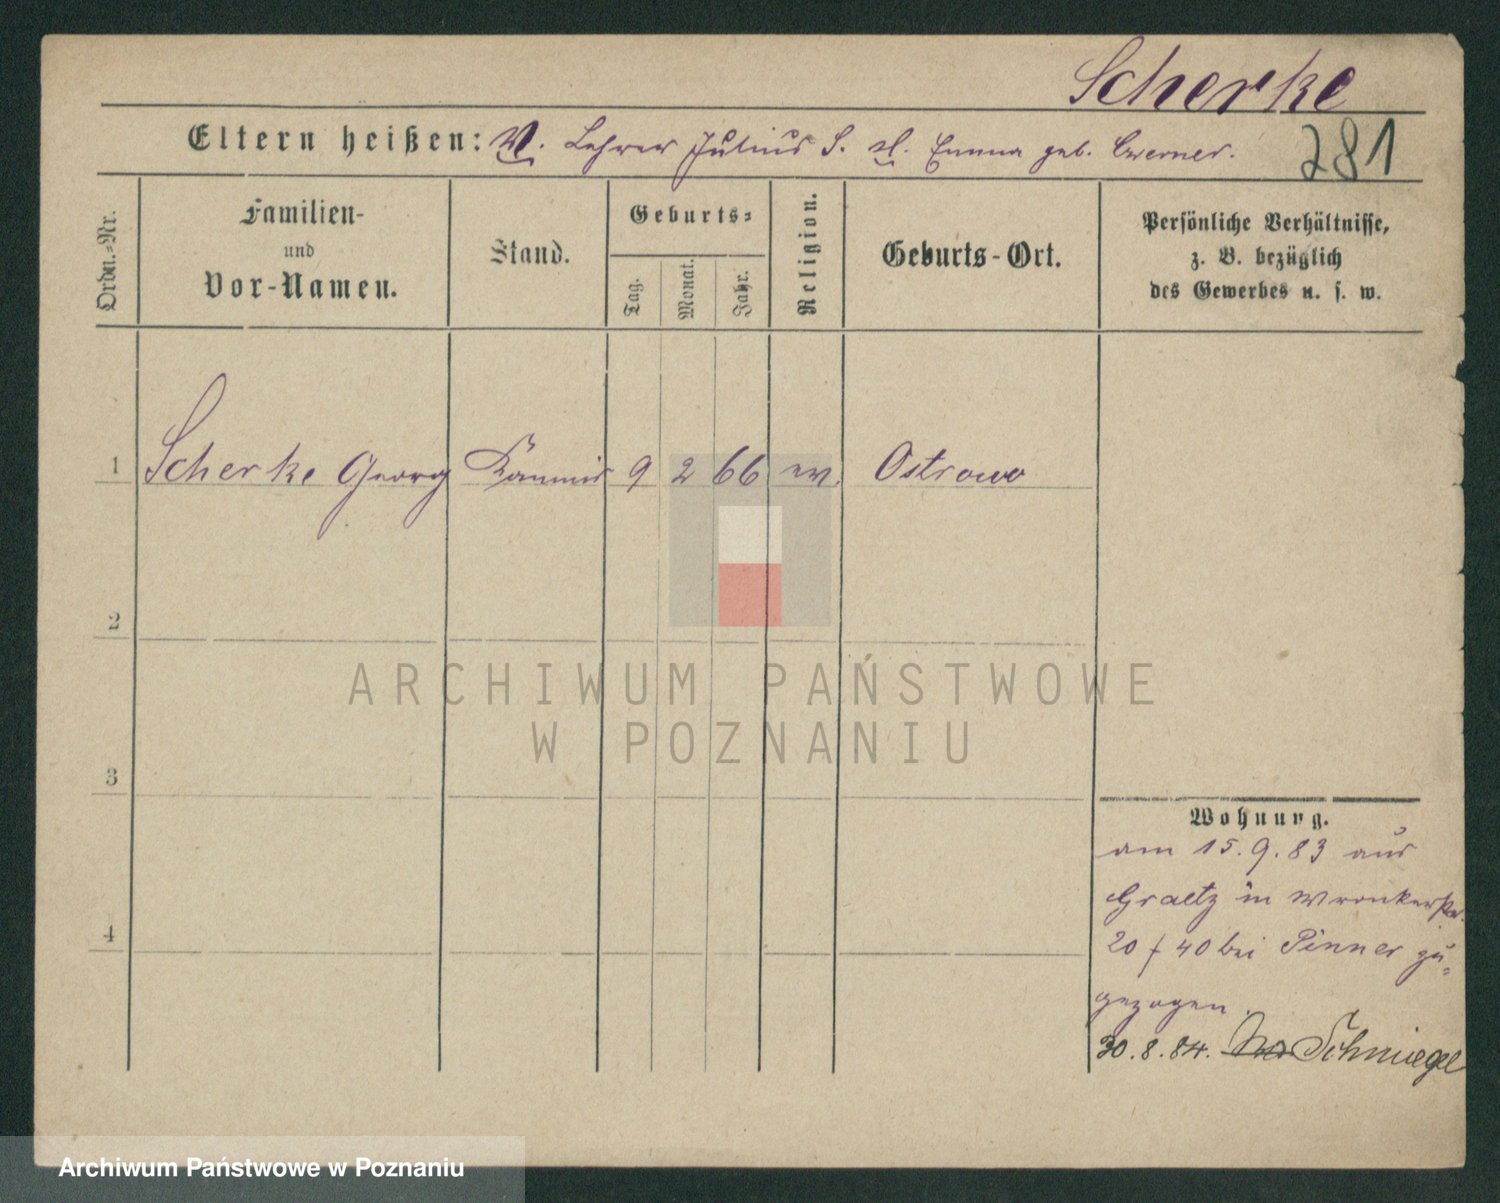 Scherke
Eltern heißen: V. Lehrer Julius S. M. Emma geb. Werner.
281
Ordn.=Nr.
Familien-
und
Vor-Namen.
Stand.
Geburts=
Tag.
Monat.
Jahr.
Religion.
Geburts-Ort.
Persönliche Verhältnisse,
z. B. bezüglich
des Gewerbes u. s. w.
1 Scherke Georg Kommis 9 2 66 ev. Ostrowo
2
3
4
Wohnung.
am 15.9.83 aus
Graetz in Wronkerstr.
20/40 bei Pinner zu=
gezogen.
30.8.84. Schmiegel
ARCHIWUM PAŃSTWOWE
W POZNANIU
Archiwum Państwowe w Poznaniu